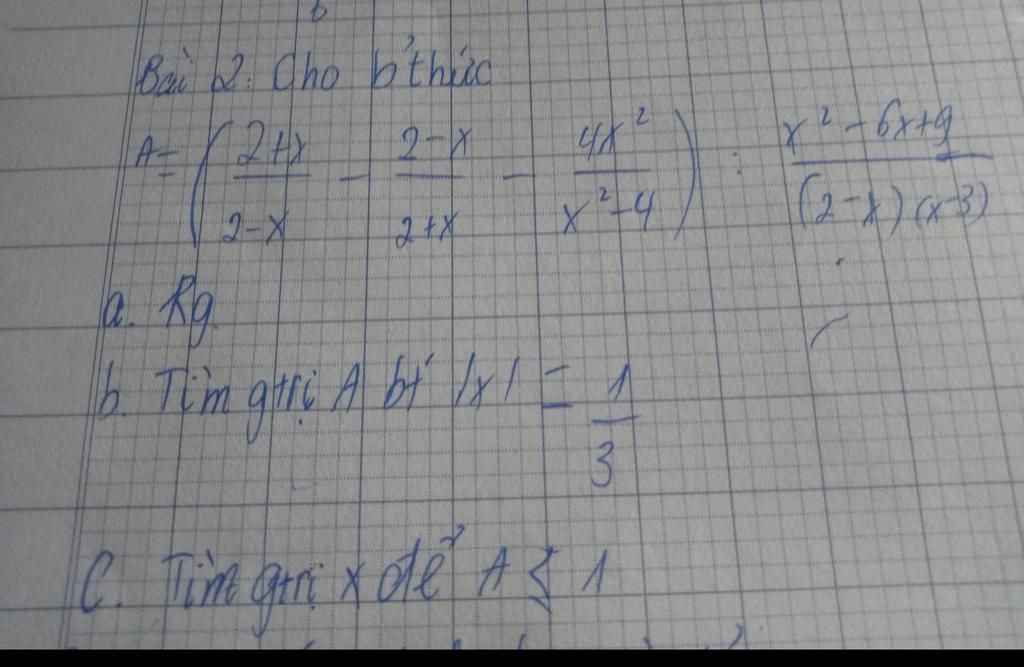 Bài 2: Cho b' thức
A = ( (2+x)/(2-x) - (2-x)/(2+x) - 4x²/(x²-4) ) : (x²-6x+9)/((2-x)(x-3))
a. Rg
b. Tìm gtrị A bt' |x| = 1/3
C. Tìm gtrị x để A < 1